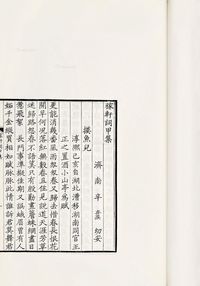 稼軒詞甲集
濟南辛棄疾幼安
摸魚兒
淳熙己亥自湖北漕移湖南同官王
正之置酒小山亭為賦
更能消幾番風雨怱怱春又歸去惜春長恨花
開早何況落紅無數春且住見說道天涯芳草
迷歸路怨春不語算只有殷勤畫簷蛛網盡日
惹飛絮 長門事準擬佳期又誤蛾眉曾有人
妬千金縱買相如賦脉脉此情誰訴君莫舞君